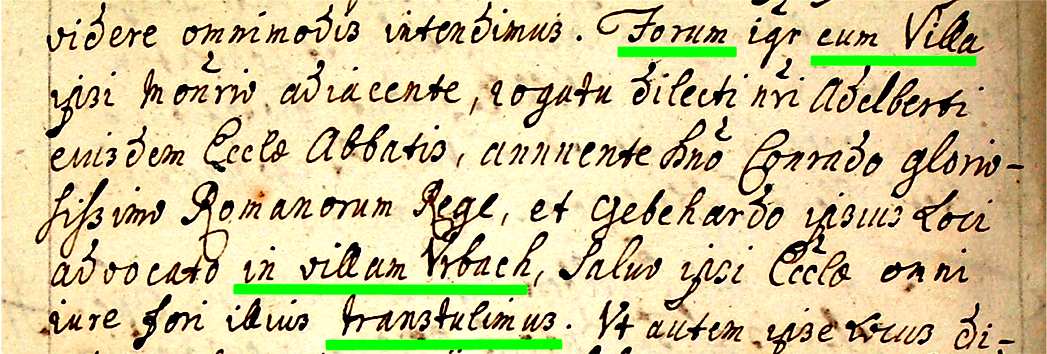 videre omnimodis intendimus. Forum igr cum Villa
ipsi Monrio adiacente, rogatu dilecti nri Adelberti
eiusdem Eccle Abbatis, annuente dno Conrado glorio-
sissimo Romanorum Rege, et Gebehardo ipsius Loci
advocato in villam Vrbach, Salvo ipsi Eccle omni
iure fori illius transtulimus. Vt autem ipse Locus di-